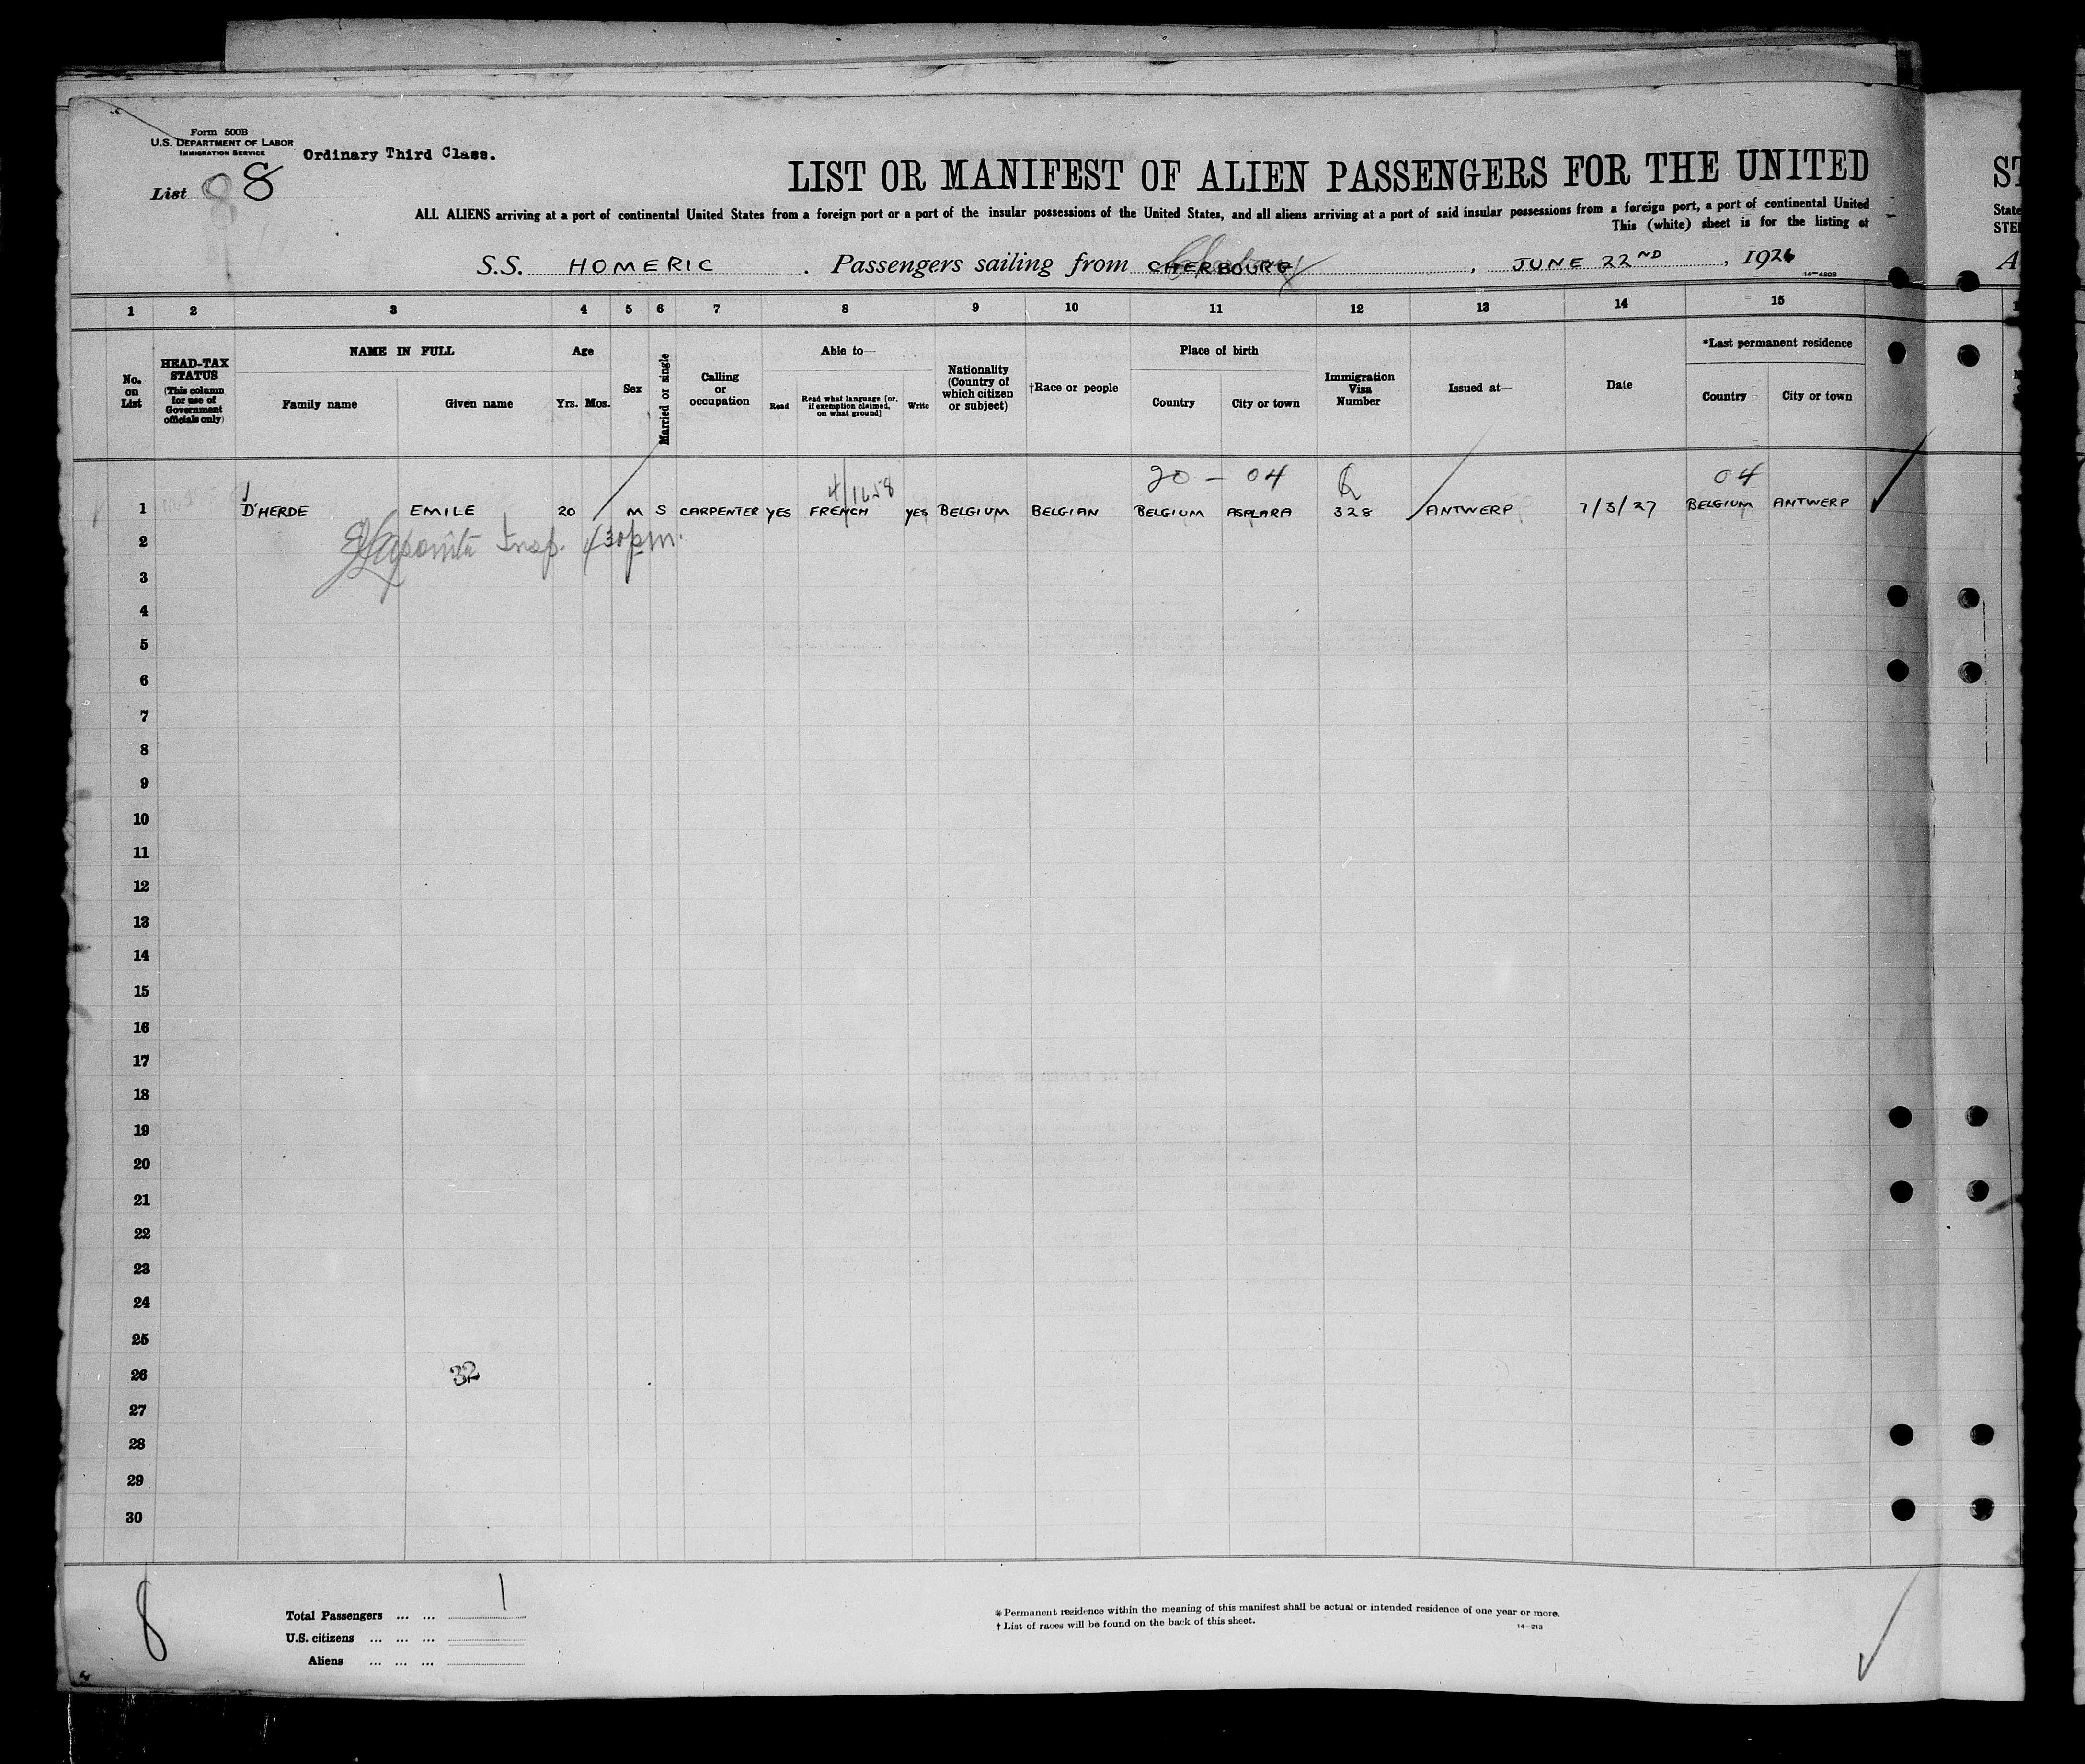 Form 500B
U.S. DEPARTMENT OF LABOR
IMMIGRATION SERVICE
Ordinary Third Class.
List 8
LIST OR MANIFEST OF ALIEN PASSENGERS FOR THE UNITED
ST
ALL ALIENS arriving at a port of continental United States from a foreign port or a port of the insular possessions of the United States, and all aliens arriving at a port of said insular possessions from a foreign port, a port of continental United
State
This (white) sheet is for the listing of
STE
S.S. HOMERIC . Passengers sailing from CHERBOURG , JUNE 22ND , 1926
A
14-480B
1 2 3 4 5 6 7 8 9 10 11 12 13 14 15
No. on List
HEAD-TAX STATUS
(This column for use of Government officials only)
NAME IN FULL
Family name Given name
Age
Yrs. Mos.
Sex
Married or single
Calling or occupation
Able to—
Read
Read what language [or, if exemption claimed, on what ground]
Write
Nationality (Country of which citizen or subject)
†Race or people
Place of birth
Country City or town
Immigration Visa Number
Issued at—
Date
*Last permanent residence
Country City or town
20 - 04 04
1 D'HERDE EMILE 20 M S CARPENTER YES FRENCH YES BELGIUM BELGIAN BELGIUM ASPLARA 328 ANTWERP 7/3/27 BELGIUM ANTWERP
2 Insp. 430pm.
3
4
5
6
7
8
9
10
11
12
13
14
15
16
17
18
19
20
21
22
23
24
25
26 32
27
28
29
30
8
Total Passengers ... ... 1
U.S. citizens ... ... ...
Aliens ... ... ...
* Permanent residence within the meaning of this manifest shall be actual or intended residence of one year or more.
† List of races will be found on the back of this sheet.
14-213